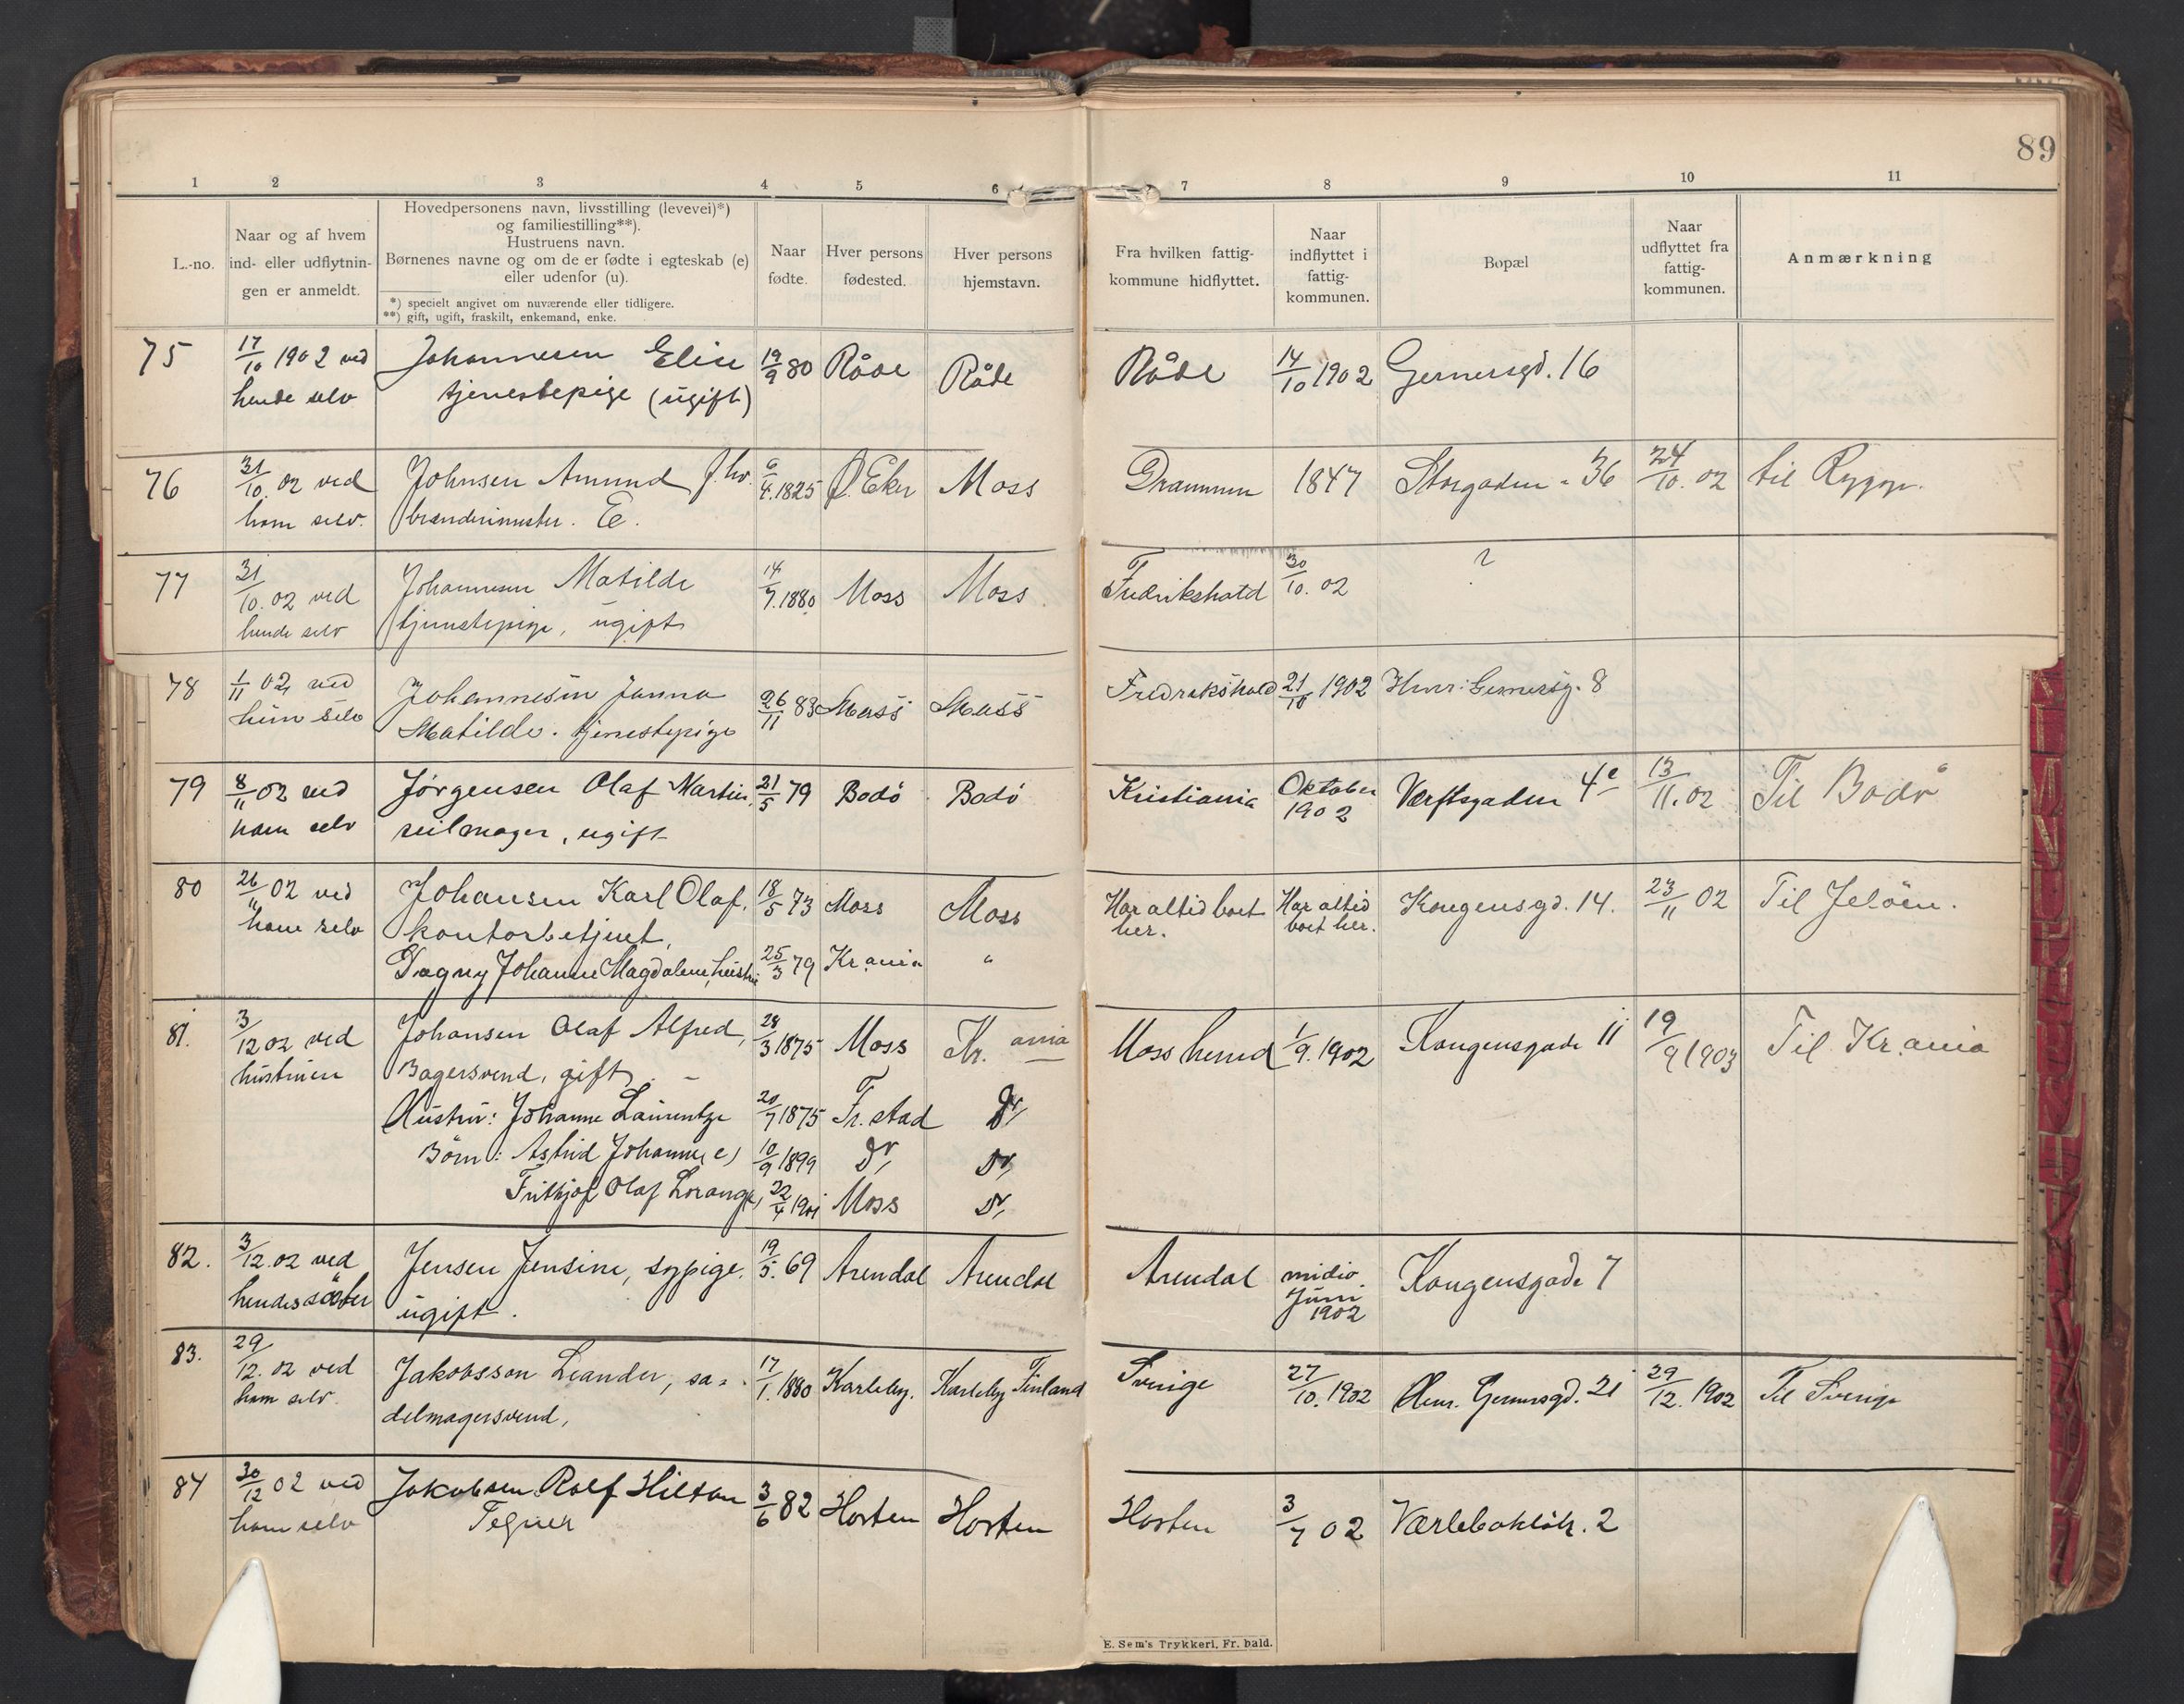 89
1 2 3 4 5 6 7 8 9 10 11
L.-no.
Naar og af hvem
ind- eller udflytnin-
gen er anmeldt.
Hovedpersonens navn, livsstilling (levevei)*)
og familiestilling**).
Hustruens navn.
Børnenes navne og om de er fødte i egteskab (e)
eller udenfor (u).
*) specielt angivet om nuværende eller tidligere.
**) gift, ugift, fraskilt, enkemand, enke.
Naar
fødte.
Hver persons
fødested.
Hver persons
hjemstavn.
Fra hvilken fattig-
kommune hidflyttet.
Naar
indflyttet i
fattig-
kommunen.
Bopæl
Naar
udflyttet fra
fattig-
kommunen.
Anmærkning
75 17/10 1902 ved Johannesen Elise 19/9 80 Råde Råde Råde 14/10 1902 Gernersgd. 16
hende selv tjenestepige (ugift)
76 31/10. 02 ved Johnsen Amund f. hv. 6/4. 1825 Ø. Eker Moss Drammen 1847 Storgaden - 36 24/10. 02 til Rygge.
ham selv. brænderimester. E.
77 31/10. 02 ved Johannesen Matilde 14/7. 1880 Moss Moss Fredrikshald 30/10. 02 ?
hende selv tjenestepige, ugift
78 1/11 02 ved Johannesen Janna 26/11 83 Moss Moss Fredrikshald 21/10 1902 Henr: Gernersg. 8
hun selv Matilde. tjenestepige
79 8/11 02 ved Jørgensen Olaf Martin, 21/5 79 Bodö Bodö Kristiania Oktober 1902 Værftsgaden 4e 13/11. 02 Til Bodö
ham selv seilmager, ugift
80 26/11 02 ved Johansen Karl Olaf, 18/5 73 Moss Moss Har altid boet her. Har altid boet her. Kongensgd. 14. 23/11 02 Til Jelöen.
ham selv kontorbetjent,
Dagny Johanne Magdalene, hustru 25/3 79 Kr.ania "
81. 3/12 02 ved Johansen Olaf Alfred, 28/3 1875 Moss Kr.ania Moss herred 1/9. 1902 Kongensgade 11 19/9 1903 Til Kr.ania
hustruen Bagersvend, gift. -
Hustru: Johanne Laurentze 20/7 1875 Fr.stad Do,
Børn: Astrid Johanne (e) 10/9 1899 Do, Do,
Frithjof Olaf Lorang (e) 22/4 1901 Moss Do,
82. 3/12. 02 ved Jensen Jensine, sypige. 19/5. 69 Arendal Arendal Arendal midio Juni 1902 Kongensgade 7
hendes söster ugift.
83. 29/12. 02 ved Jakobsson Leander, sa- 17/1. 1880 Karleby. Karleby Finland Sverige 27/10. 1902 Henr. Gernersgd. 21 29/12. 1902 Til Sverige
ham selv. delmagersvend,
84 30/12 02 ved Jakobsen Rolf Hilton 3/6 82 Horten Horten Horten 3/7 02 Værlebakkestr. 2
ham selv Tegner
E. Sem's Trykkeri, Fr. hald.